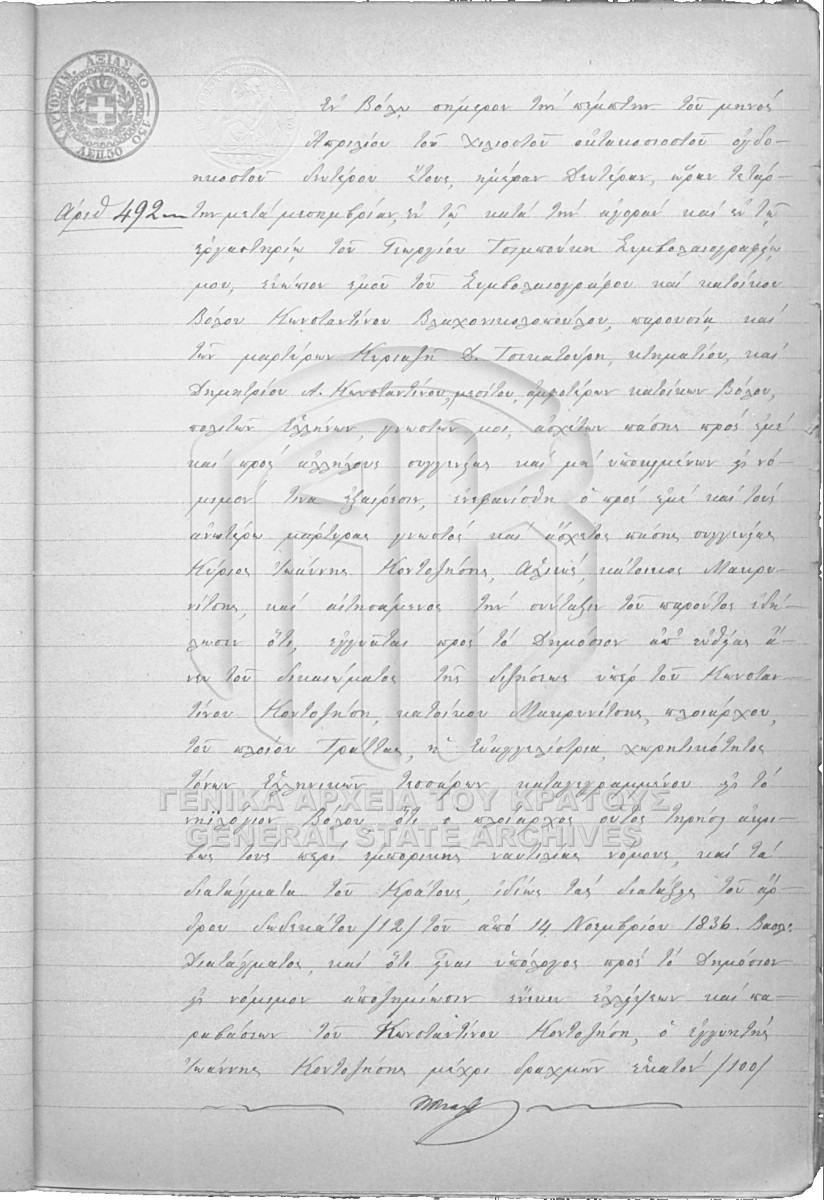 ΧΑΡΤΟΣΗΜ. ΑΞΙΑΣ 10 - 150
ΛΕΠ 50
Ἐν Βόλῳ σήμερον τήν πέμπτην τοῦ μηνός
Ἀπριλίου τοῦ χιλιοστοῦ ὀκτακοσιοστοῦ ὀγδο-
ηκοστοῦ δευτέρου ἔτους, ἡμέραν Δευτέραν, ὥραν τετάρ-
Ἀριθ 492
την μετά μεσημβρίαν, ἐν τῷ κατά τήν ἀγοράν καί ἐν τῷ
ἐργαστηρίῳ τοῦ Γεωργίου Τσιμπούκη Συμβολαιογραφείῳ
μου, ἐνώπιον ἐμοῦ τοῦ Συμβολαιογράφου καί κατοίκου
Βόλου Κωνσταντίνου Βλαχονικολοπούλου, παρουσίᾳ καί
τῶν μαρτύρων Κυριαζῆ Δ. Τσικατούρη, κτηματίου, καί
Δημητρίου Α. Κωνσταντίνου, μεσίτου, ἀμφοτέρων κατοίκων Βόλου,
πολιτῶν Ἑλλήνων, γνωστῶν μοι, ἀσχέτων πάσης πρός ἐμέ
καί πρός ἀλλήλους συγγενείας καί μή ὑποκειμένων εἰς νό-
μιμον τινα ἐξαίρεσιν, ἐνεφανίσθη ὁ πρός ἐμέ καί τούς
ἀνωτέρω μάρτυρας γνωστός καί ἄσχετος πάσης συγγενείας
Κύριος Ἰωάννης Κοντοξήσης, Ἁλιεύς, κάτοικος Μακρυ-
νίτσης, καί αἰτησάμενος τήν σύνταξιν τοῦ παρόντος ἐδή-
λωσεν ὅτι, ἐγγυᾶται πρός τό Δημόσιον ἀπ' εὐθείας ἄ-
νευ τοῦ δικαιώματος τῆς διζήσεως ὑπέρ τοῦ Κωνσταν-
τίνου Κοντοξήση, κατοίκου Μακρυνίτσης, πλοιάρχου,
τοῦ πλοίου Τράττας, ἡ Εὐαγγελίστρια, χωρητικότητος
τόνων Ἑλληνικῶν τεσσάρων καταγεγραμμένου εἰς τό
νηολόγιον Βόλου, ὅτι ὁ πλοίαρχος οὗτος τηρήσει ἀκρι-
βῶς τους περί ἐμπορικῆς ναυτιλίας νόμους, καί τά
διατάγματα τοῦ Κράτους, ἰδίως τάς διατάξεις τοῦ ἄρ-
θρου δωδεκάτου /12/ τοῦ ἀπό 14 Νοεμβρίου 1836. Βασιλ:
Διατάγματος, καί ὅτι εἶναι ὑπόλογος πρός τό Δημόσιον
εἰς νόμιμον ἀποζημίωσιν ἕνεκεν ἐλλείψεων καί πα-
ραβάσεων τοῦ Κωνσταντίνου Κοντοξήση, ὁ ἐγγυητής
Ἰωάννης Κοντοξήσης μέχρι δραχμῶν ἑκατόν /100/
ΓΕΝΙΚΑ ΑΡΧΕΙΑ ΤΟΥ ΚΡΑΤΟΥΣ
GENERAL STATE ARCHIVES